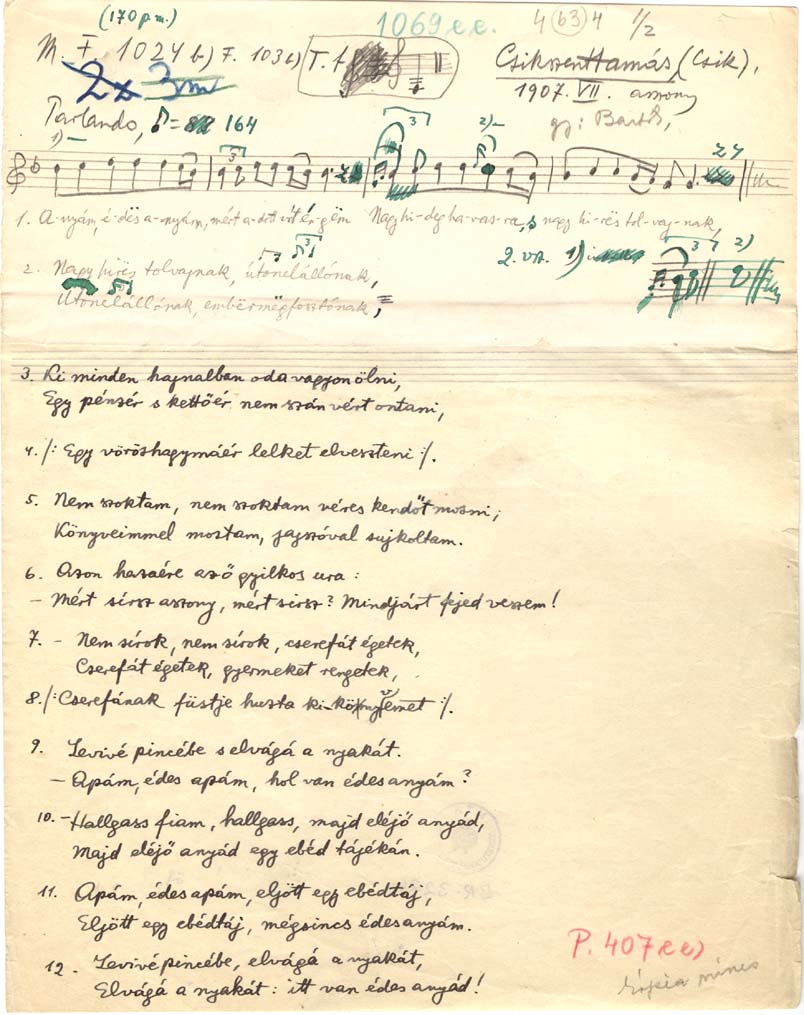 (170 p.m.)
1069 e.e. 4 (b3) 4 1/2
M. F. 1024 b) F. 103 c) T. f
Csikszenttamás (Csik),
2x 3m
1907. VII. asszony
Parlando, ♪= 164
gy: Bartók,
1) 3 3 2)
1. A-nyám, é-dës a-nyám, mért a-dot vót ën-gëm Nagy hi-deg ha-vas-ra, s nagy hi-rës tol-vaj-nak,
2. vsz. 1) 3 2)
2. Nagy hirës tolvajnak, útonelállónak,
Útonelállónak, embërmëgfosztónak,
3. Ki minden hajnalban oda vagyon ölni,
Egy pénzér s kettőér nem szán vért ontani,
4. /: Egy vöröshagymáér lelket elveszteni :/.
5. Nem szoktam, nem szoktam véres kendőt mosni,
Könyveimmel mostam, jajszóval sujkoltam.
6. Azon hazaére az ő gyilkos ura:
– Mért sírsz asszony, mért sirsz? Mindjárt fejed veszem!
7. – Nem sírok, nem sírok, cserefát égetek,
Cserefát égetek, gyermeket rengetek,
8. /: Cserefának füstje huzta ki könyvemet :/.
9. Levivé pincébe s elvágá a nyakát.
– Apám, édes apám, hol van édesanyám?
10. – Hallgass fiam, hallgass, majd eléjő anyád,
Majd eléjő anyád egy ebéd tájékán.
11. Apám, édes apám, eljött egy ebédtáj,
Eljött egy ebédtáj, mégsincs édesanyám.
12. Levivé pincébe, elvágá a nyakát,
Elvágá a nyakát: itt van édes anyád!
P. 407 e e)
kópia nincs